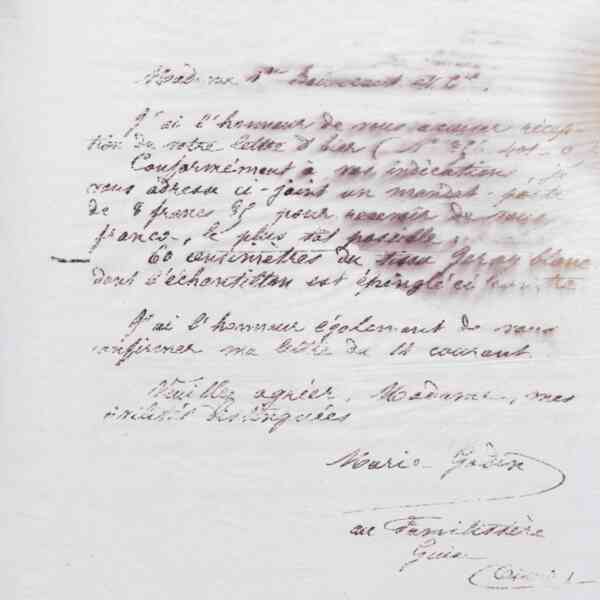 Madame Vve
J'ai l'honneur de vous accuser récep-
tion de votre lettre d'hier (N°
Conformément à vos indications, je
vous adresse ci-joint un mandat-poste
de 8 francs 35 pour recevoir de vous
franco, le plus tôt possible,
60 centimètres du tissu blanc
dont l'échantillon est épinglé ci contre
J'ai l'honneur également de vous
confirmer ma lettre du 14 courant.
Veuillez agréer, Madame, mes
civilités distinguées
Marie Godin
au Familistère
Guise
(Aisne)